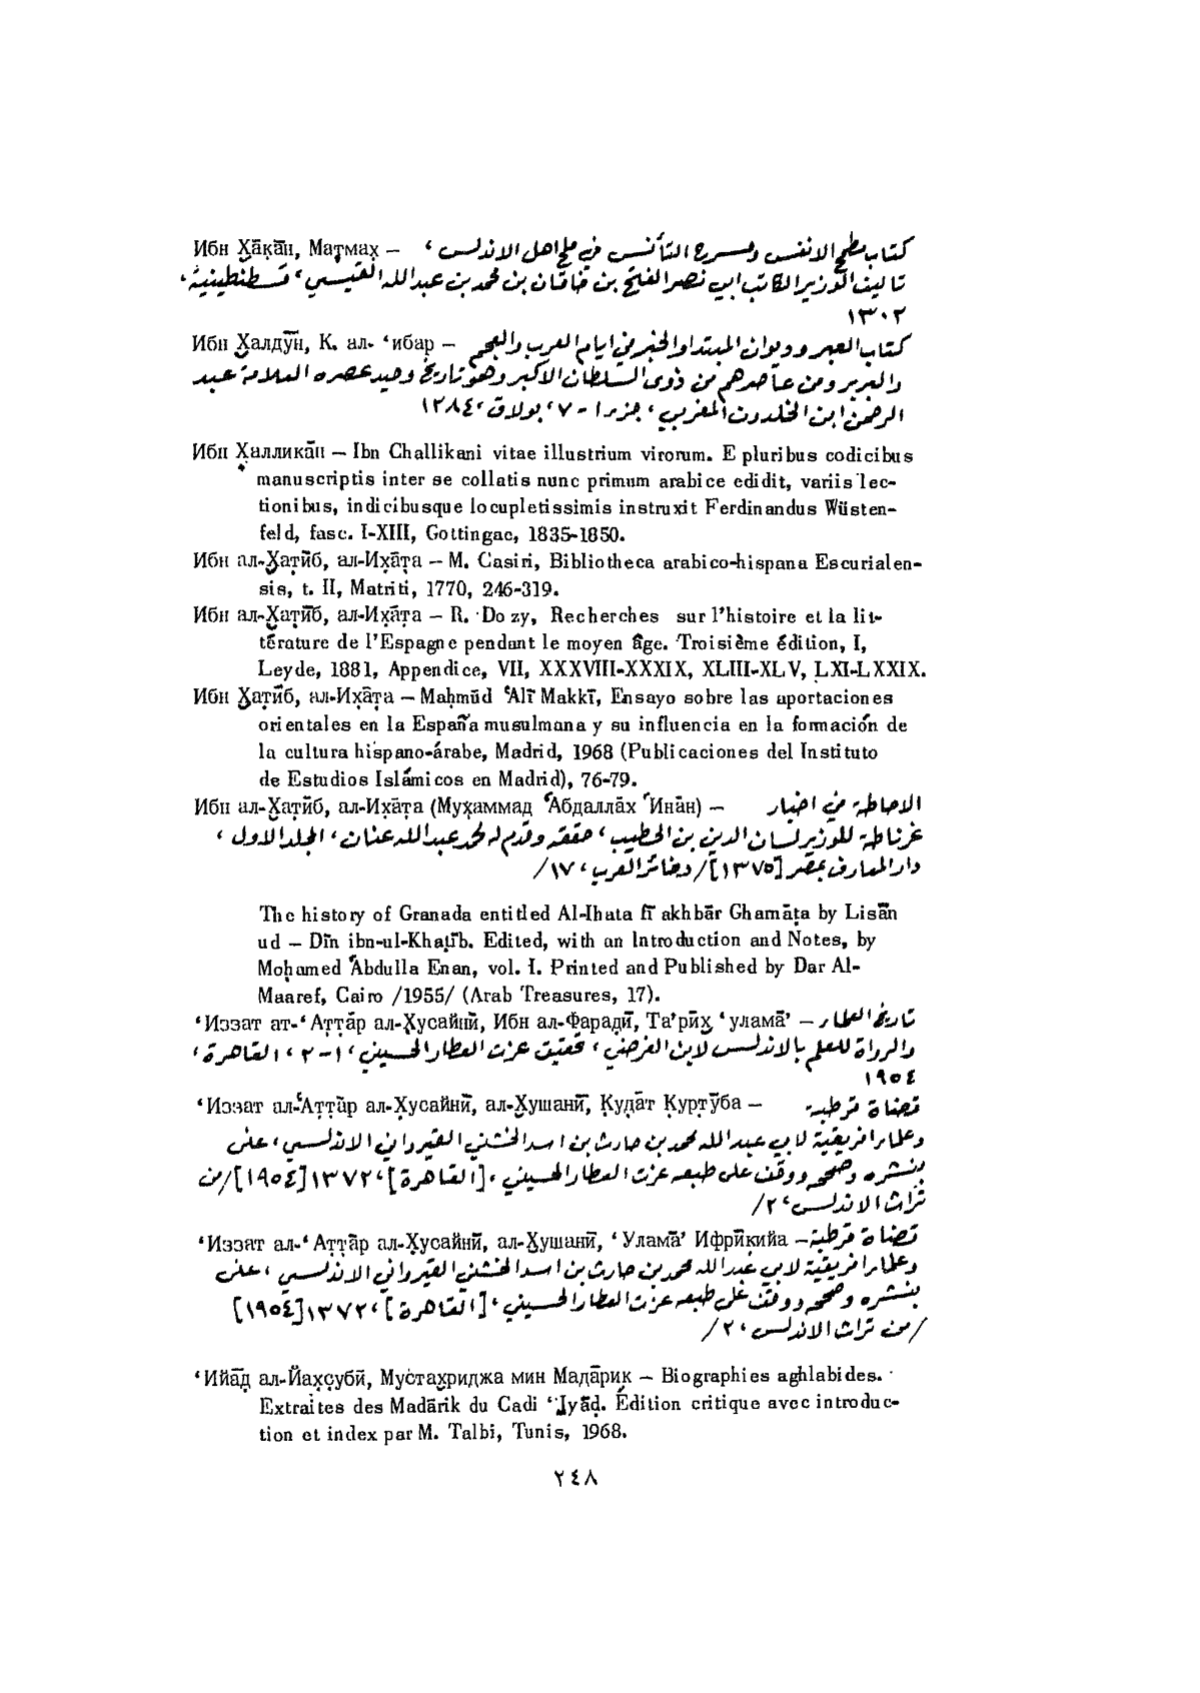 Ибн Х̮а̄к̣а̄н, Мат̣мах̣ – كتاب مطمح الانفس ومسرح التأنس في ملح اهل الاندلس ،
تاليف الوزير الكاتب ابي نصر الفتح بن خاقان بن محمد بن عبد الله القيسي، قسطنطينية،
١٣٠٢
Ибн Х̮алдӯн, К. ал- ‘ибар – كتاب العبر وديوان المبتداو الخبر في ايام العرب والعجم
والبربر ومن عاصرهم من ذوى السلطان الاكبر وهو تاريخ وحيد عصره العلامة عبد
الرحمن ابن الخلدون المغربي، جزء ١ - ٧، بولاق، ١٢٨٤
Ибн Х̮алликāн – Ibn Challikani vitae illustrium virorum. E pluribus codicibus
manuscriptis inter se collatis nunc primum arabice edidit, variis lec-
tionibus, indicibusque locupletissimis instruxit Ferdinandus Wüsten-
feld, fasc. I-XIII, Gottingae, 1835-1850.
Ибн ал-Х̮ат̣ӣб, ал-Их̣āт̣а – M. Casiri, Bibliotheca arabico-hispana Escurialen-
sis, t. II, Matriti, 1770, 246-319.
Ибн ал-Х̮ат̣ӣб, ал-Их̣āт̣а – R. Dozy, Recherches sur l'histoire et la lit-
térature de l'Espagne pendant le moyen âge. Troisième édition, I,
Leyde, 1881, Appendice, VII, XXXVIII-XXXIX, XLIII-XLV, LXI-LXXIX.
Ибн Х̮ат̣ӣб, ал-Их̣āт̣а – Maḥmūd ‘Alī Makkī, Ensayo sobre las aportaciones
orientales en la España musulmana y su influencia en la formación de
la cultura hispano-árabe, Madrid, 1968 (Publicaciones del Instituto
de Estudios Islámicos en Madrid), 76-79.
Ибн ал-Х̮ат̣ӣб, ал-Их̣āт̣а (Мух̣аммад ‘Абдаллāх ‘Инāн) – الاحاطة في اخبار
غرناطة للوزير لسان الدين بن الخطيب، حققه وقدم له محمد عبد الله عنان، المجلد الاول ،
دار المعارف بمصر [١٣٧٥]/ ذخائر العرب، ١٧/
The history of Granada entitled Al-Ihata fī akhbār Gharnāṭa by Lisān
ud – Dīn ibn-ul-Khaṭīb. Edited, with an Introduction and Notes, by
Moḥamed ‘Abdulla Enan, vol. I. Printed and Published by Dar Al-
Maaref, Cairo /1955/ (Arab Treasures, 17).
‘Иззат ат-‘Ат̣т̣āр ал-Х̣усайнӣ, Ибн ал-Фарад̣ӣ, Та’рӣх̮ ‘улама̄’ – تاريخ العلماء
والرواة للعلم بالاندلس لابن الفرضي، تحقيق عزت العطار الحسيني، ١-٢، القاهرة،
١٩٥٤
‘Иззат ал-‘Ат̣т̣āр ал-Х̣усайнӣ, ал-Х̮ушанӣ, К̣уд̣āт К̣урт̣уба – قضاة قرطبة
وعلماء افريقية لابي عبد الله محمد بن حارث بن اسد الخشني القيرواني الاندلسي، عني
بنشره وصححه ووقف على طبعه عزت العطار الحسيني، [القاهرة]، ١٣٧٢[١٩٥٤]/من
تراث الاندلس، ٢/
‘Иззат ал-‘Ат̣т̣āр ал-Х̣усайнӣ, ал-Х̮ушанӣ, ‘Улама̄’ Ифрӣк̣ийа – قضاة قرطبة
وعلماء افريقية لابي عبد الله محمد بن حارث بن اسد الخشني القيرواني الاندلسي ، عني
بنشره وصححه ووقف على طبعه عزت العطار الحسيني، [القاهرة]، ١٣٧٢[١٩٥٤]
/من تراث الاندلس، ٢/
‘Ийāд̣ ал-Йах̣с̣убӣ, Мустах̮риджа мин Мадāрик – Biographies aghlabides.
Extraites des Madārik du Cadi ‘Iyāḍ. Édition critique avec introduc-
tion et index par M. Talbi, Tunis, 1968.
٢٤٨